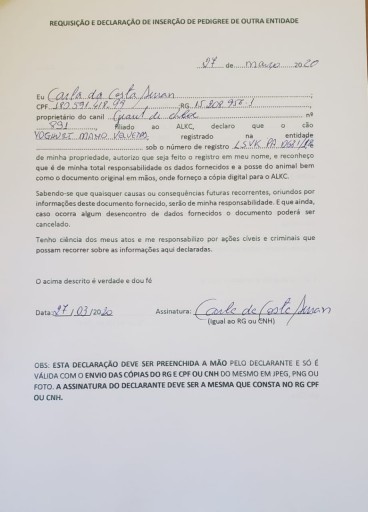 REQUISIÇÃO E DECLARAÇÃO DE INSERÇÃO DE PEDIGREE DE OUTRA ENTIDADE
27 de março 2020
Eu Carla da Costa
CPF RG
proprietário do canil nº
891, filiado ao ALKC, declaro que o cão
registrado na entidade
sob o número de registro
de minha propriedade, autorizo que seja feito o registro em meu nome, e reconheço
que é de minha total responsabilidade os dados fornecidos e a posse do animal bem
como o documento original em mãos, onde forneço a cópia digital para o ALKC.
Sabendo-se que quaisquer causas ou consequências futuras recorrentes, oriundos por
informações deste documento fornecido, serão de minha responsabilidade. E que ainda,
caso ocorra algum desencontro de dados fornecidos o documento poderá ser
cancelado.
Tenho ciência dos meus atos e me responsabilizo por ações cíveis e criminais que
possam recorrer sobre as informações aqui declaradas.
O acima descrito é verdade e dou fé
Data: 27/03/2020 Assinatura: Carla da Costa
(Igual ao RG ou CNH)
OBS: ESTA DECLARAÇÃO DEVE SER PREENCHIDA A MÃO PELO DECLARANTE E SÓ É
VÁLIDA COM O ENVIO DAS CÓPIAS DO RG E CPF OU CNH DO MESMO EM JPEG, PNG OU
FOTO. A ASSINATURA DO DECLARANTE DEVE SER A MESMA QUE CONSTA NO RG CPF
OU CNH.